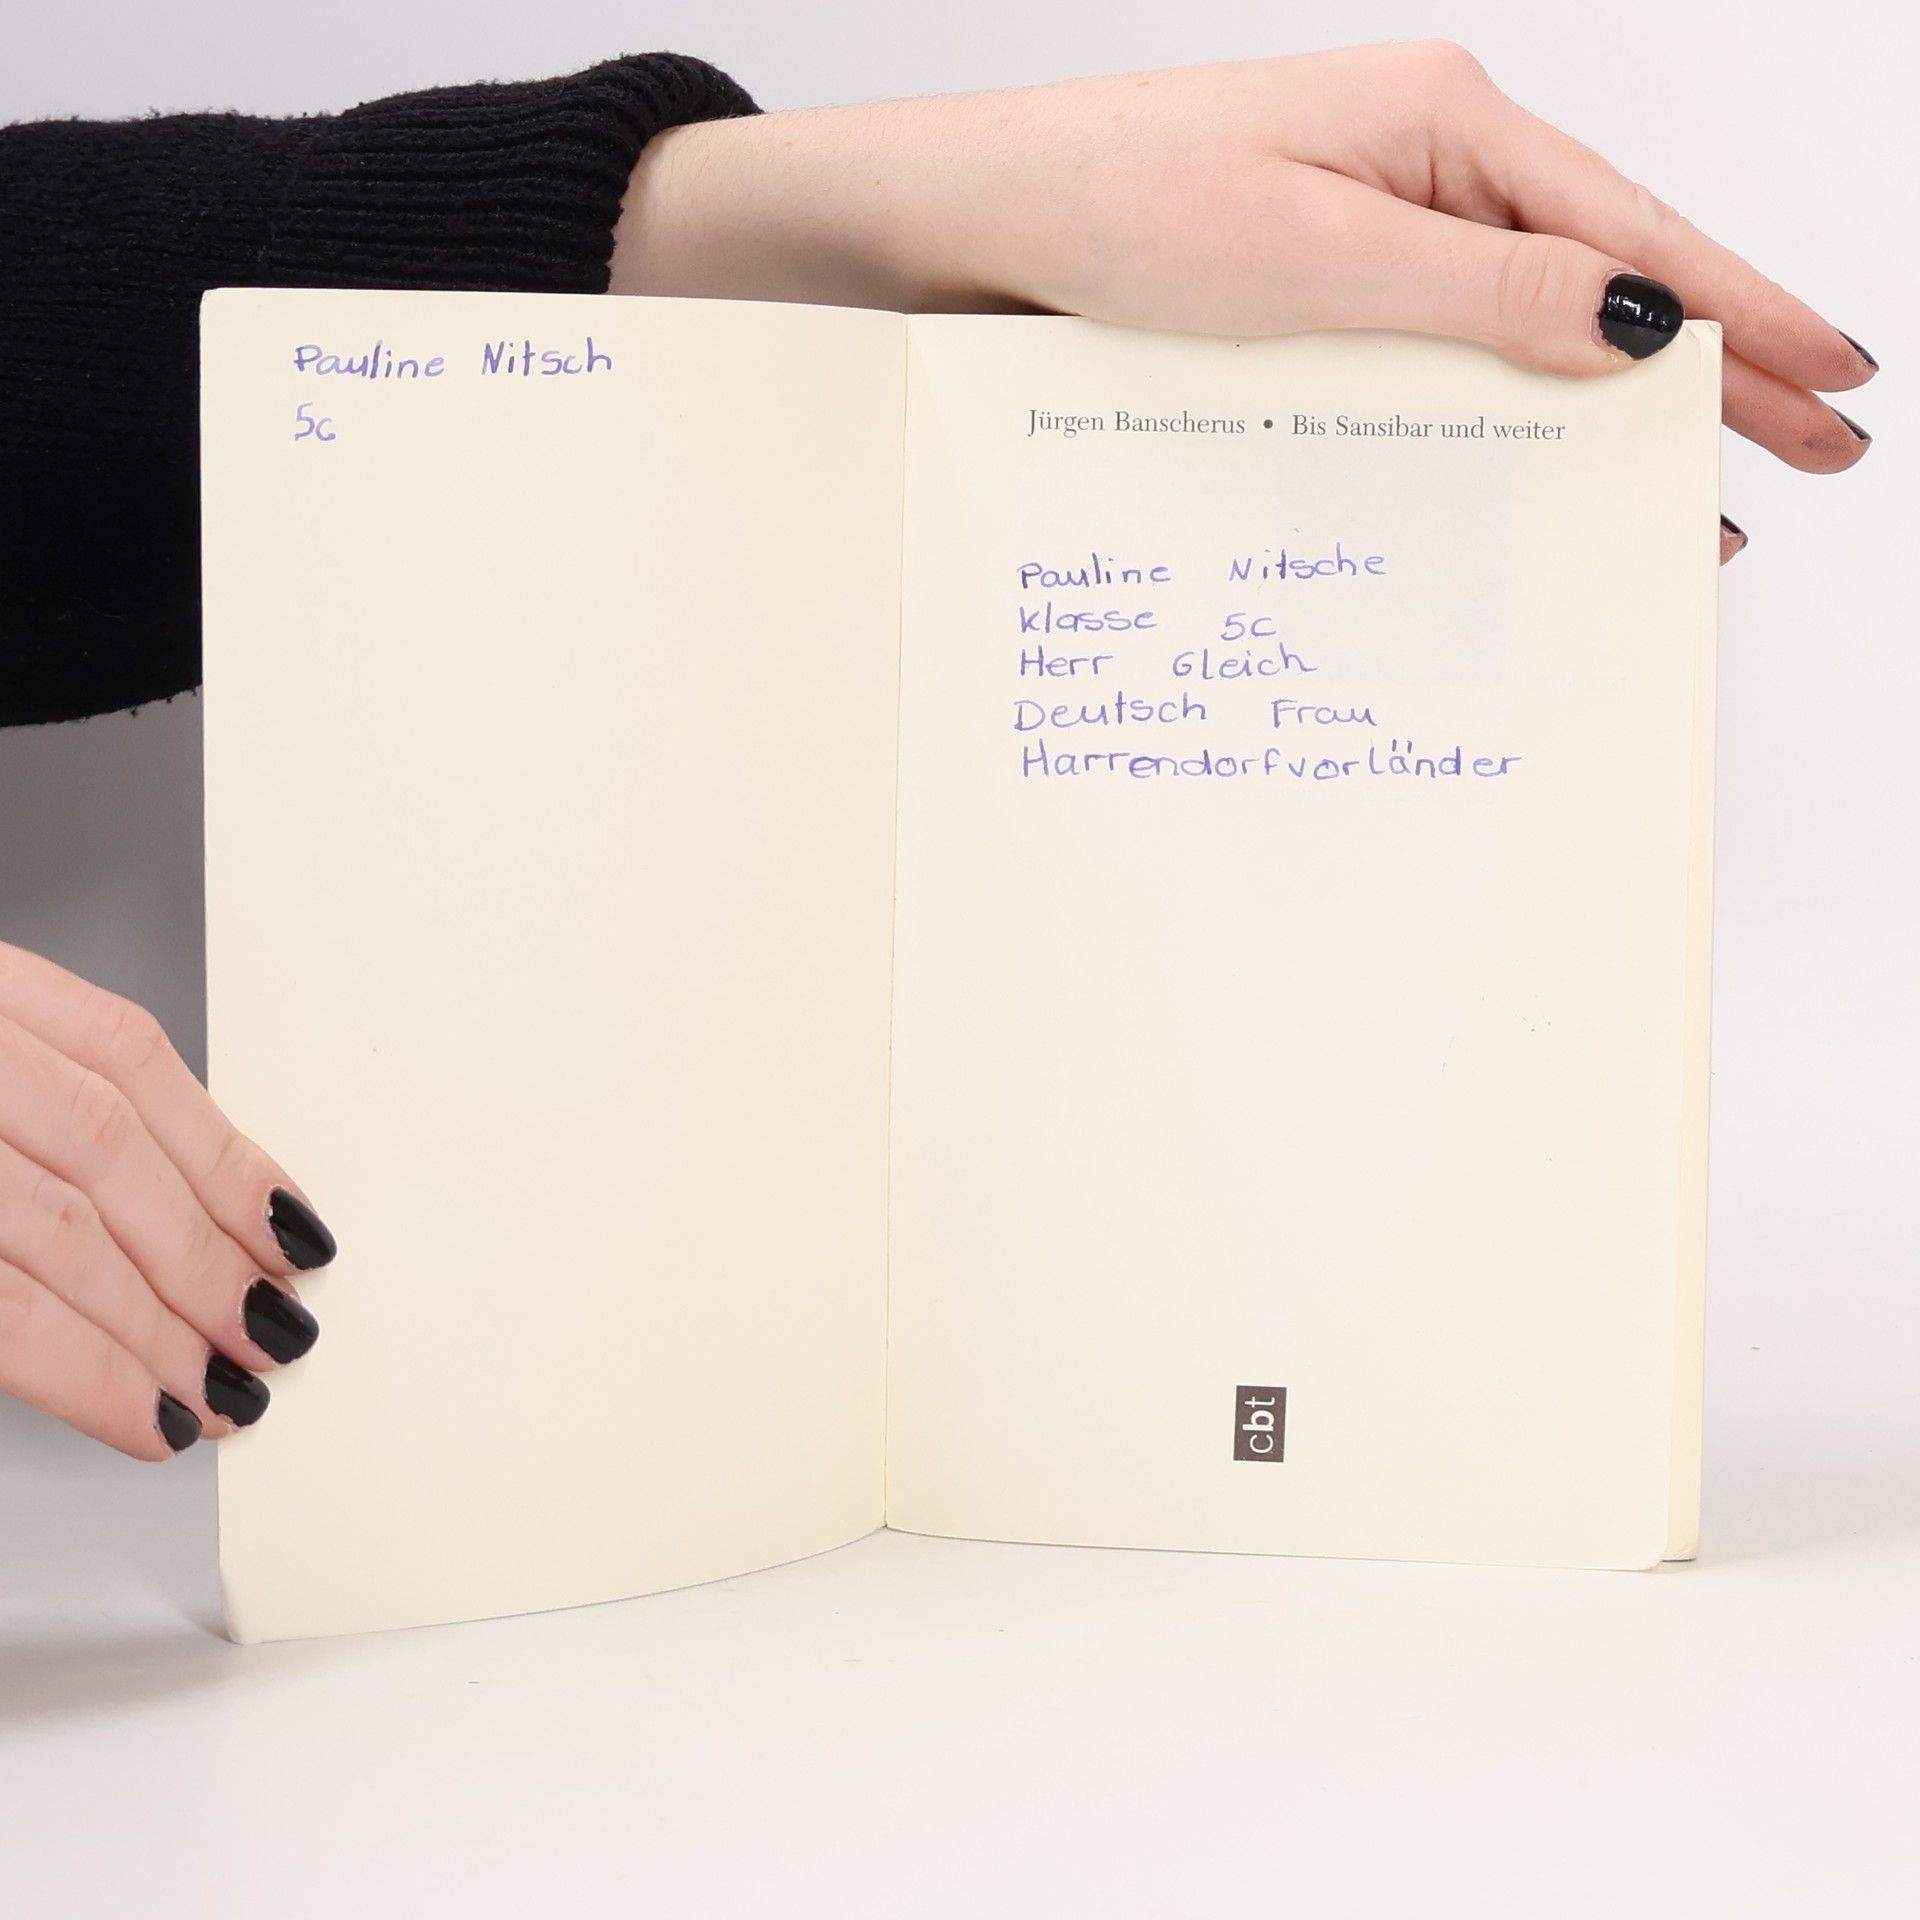 Pauline Nitsch
5c
Jürgen Banscherus • Bis Sansibar und weiter
Pauline Nitsche
Klasse 5c
Herr Gleich
Deutsch Frau
Harrendorfvorländer
cbt